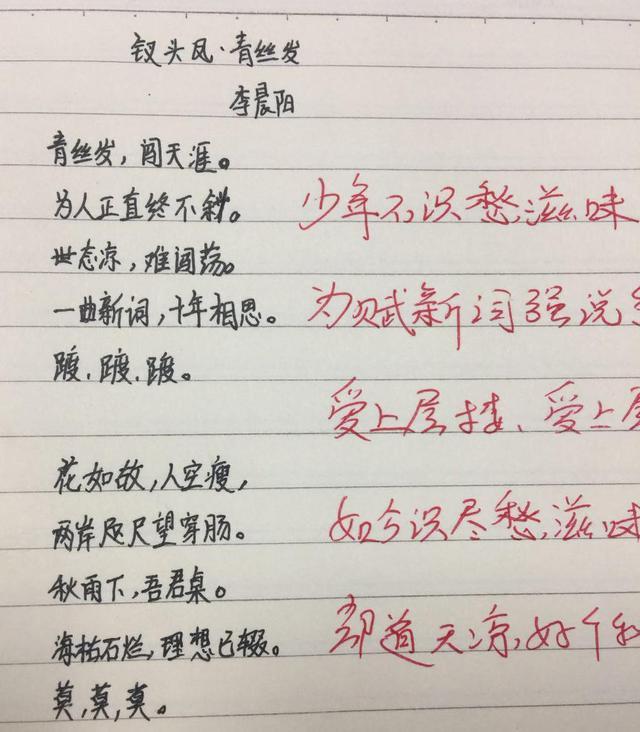 钗头凤·青丝发
李晨阳
青丝发，闯天涯。
为人正直终不斜。
世态凉，难闯荡。
一曲新词，十年相思。
踱、踱、踱。
花如故，人空瘦，
两岸咫尺望穿肠。
秋雨下，吾君桌。
海枯石烂，理想已辍。
莫，莫，莫。
少年不识愁滋味
为赋新词强说
爱上层楼、爱上
如今识尽愁滋味
却道天凉好个秋